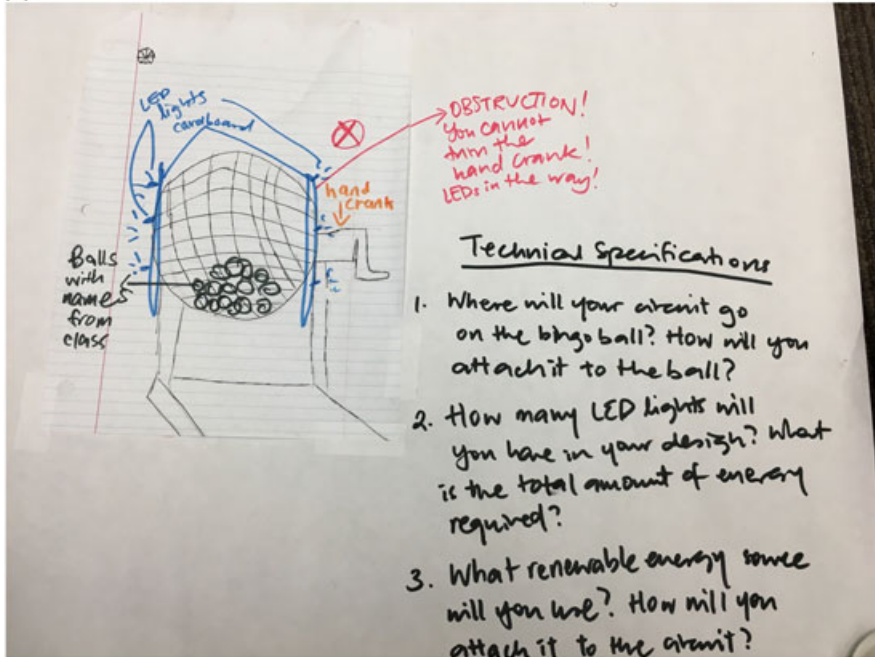 LED
lights
cardboard
OBSTRUCTION!
You cannot
turn the
hand crank!
LEDs in the way!
hand
crank
Balls
with
names
from
class
Technical Specifications
1. Where will your circuit go
on the bingo ball? How will you
attach it to the ball?
2. How many LED lights will
you have in your design? What
is the total amount of energy
required?
3. What renewable energy source
will you use? How will you
attach it to the circuit?